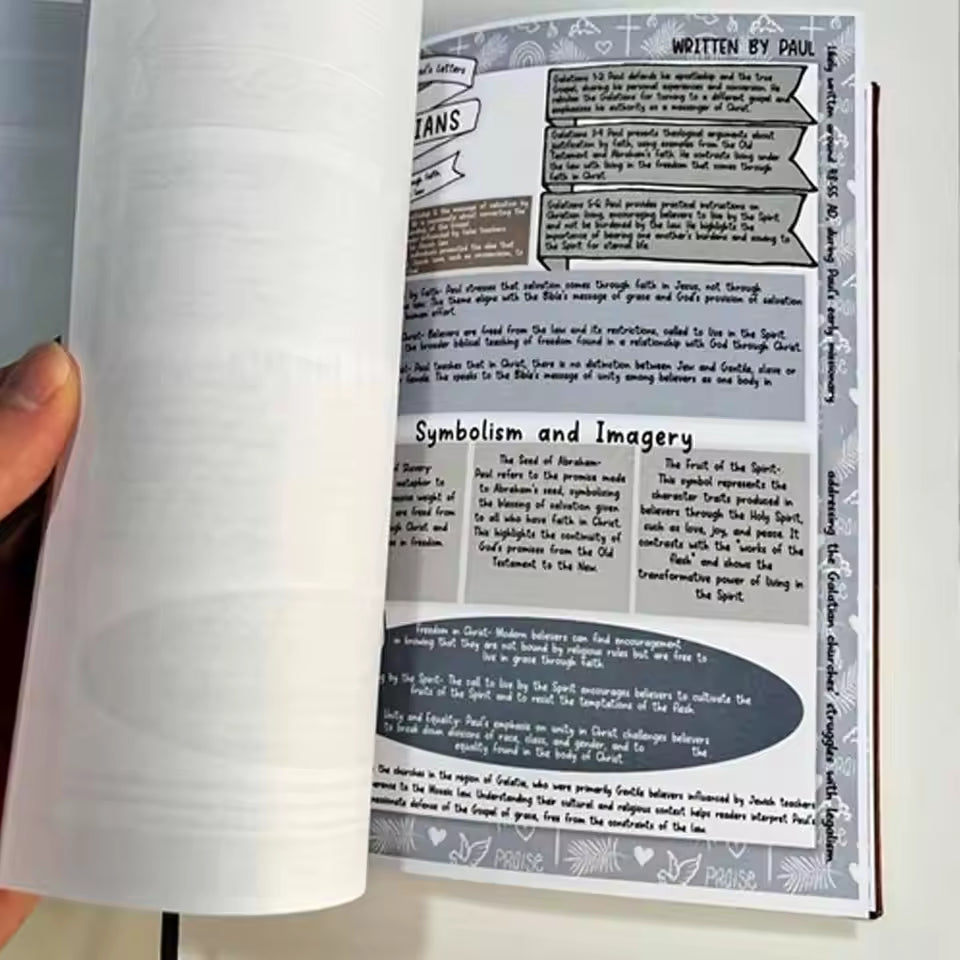 WRITTEN BY PAUL
Paul's Letters
IANS
through faith
law
Galatians 1-2: Paul defends his apostleship and the true
Gospel, sharing his personal experiences and conversion. He
rebukes the Galatians for turning to a different gospel and
emphasizes his authority as a messenger of Christ.
Galatians 3-4: Paul presents theological arguments about
justification by faith, using examples from the Old
Testament and Abraham's faith. He contrasts living under
the law with living in the freedom that comes through
faith in Christ.
Galatians 5-6: Paul provides practical instructions on
Christian living, encouraging believers to live by the Spirit
and not be burdened by the law. He highlights the
importance of bearing one another's burdens and sowing to
the Spirit for eternal life.
is the message of salvation by
false teachers
presented the idea that
such as circumcision, to
by Faith- Paul stresses that salvation comes through faith in Jesus, not through
law. The theme aligns with the Bible's message of grace and God's provision of salvation
human effort.
Christ- Believers are freed from the law and its restrictions, called to live in the Spirit.
the broader biblical teaching of freedom found in a relationship with God through Christ.
Paul teaches that in Christ, there is no distinction between Jew and Gentile, slave or
female. The speaks to the Bible's message of unity among believers as one body in
Symbolism and Imagery
of Slavery-
metaphor to
weight of
are freed from
Christ and
in freedom.
The Seed of Abraham-
Paul refers to the promise made
to Abraham's seed, symbolizing
the blessing of salvation given
to all who have faith in Christ.
This highlights the continuity of
God's promises from the Old
Testament to the New.
The Fruit of the Spirit-
This symbol represents the
character traits produced in
believers through the Holy Spirit,
such as love, joy, and peace. It
contrasts with the "works of the
flesh" and shows the
transformative power of living in
the Spirit.
Freedom in Christ- Modern believers can find encouragement
in knowing that they are not bound by religious rules but are free to
live in grace through faith.
by the Spirit- The call to live by the Spirit encourages believers to cultivate the
fruits of the Spirit and to resist the temptations of the flesh.
Unity and Equality- Paul's emphasis on unity in Christ challenges believers
to break down divisions of race, class, and gender, and to the
equality found in the body of Christ.
the churches in the region of Galatia, who were primarily Gentile believers influenced by Jewish teachers
to the Mosaic law. Understanding their cultural and religious context helps readers interpret Paul's
passionate defense of the Gospel of grace, free from the constraints of the law.
likely written around 48-55 AD, during Paul's early missionary
addressing the Galatian churches' struggles with legalism
PRAISE
PRAISE